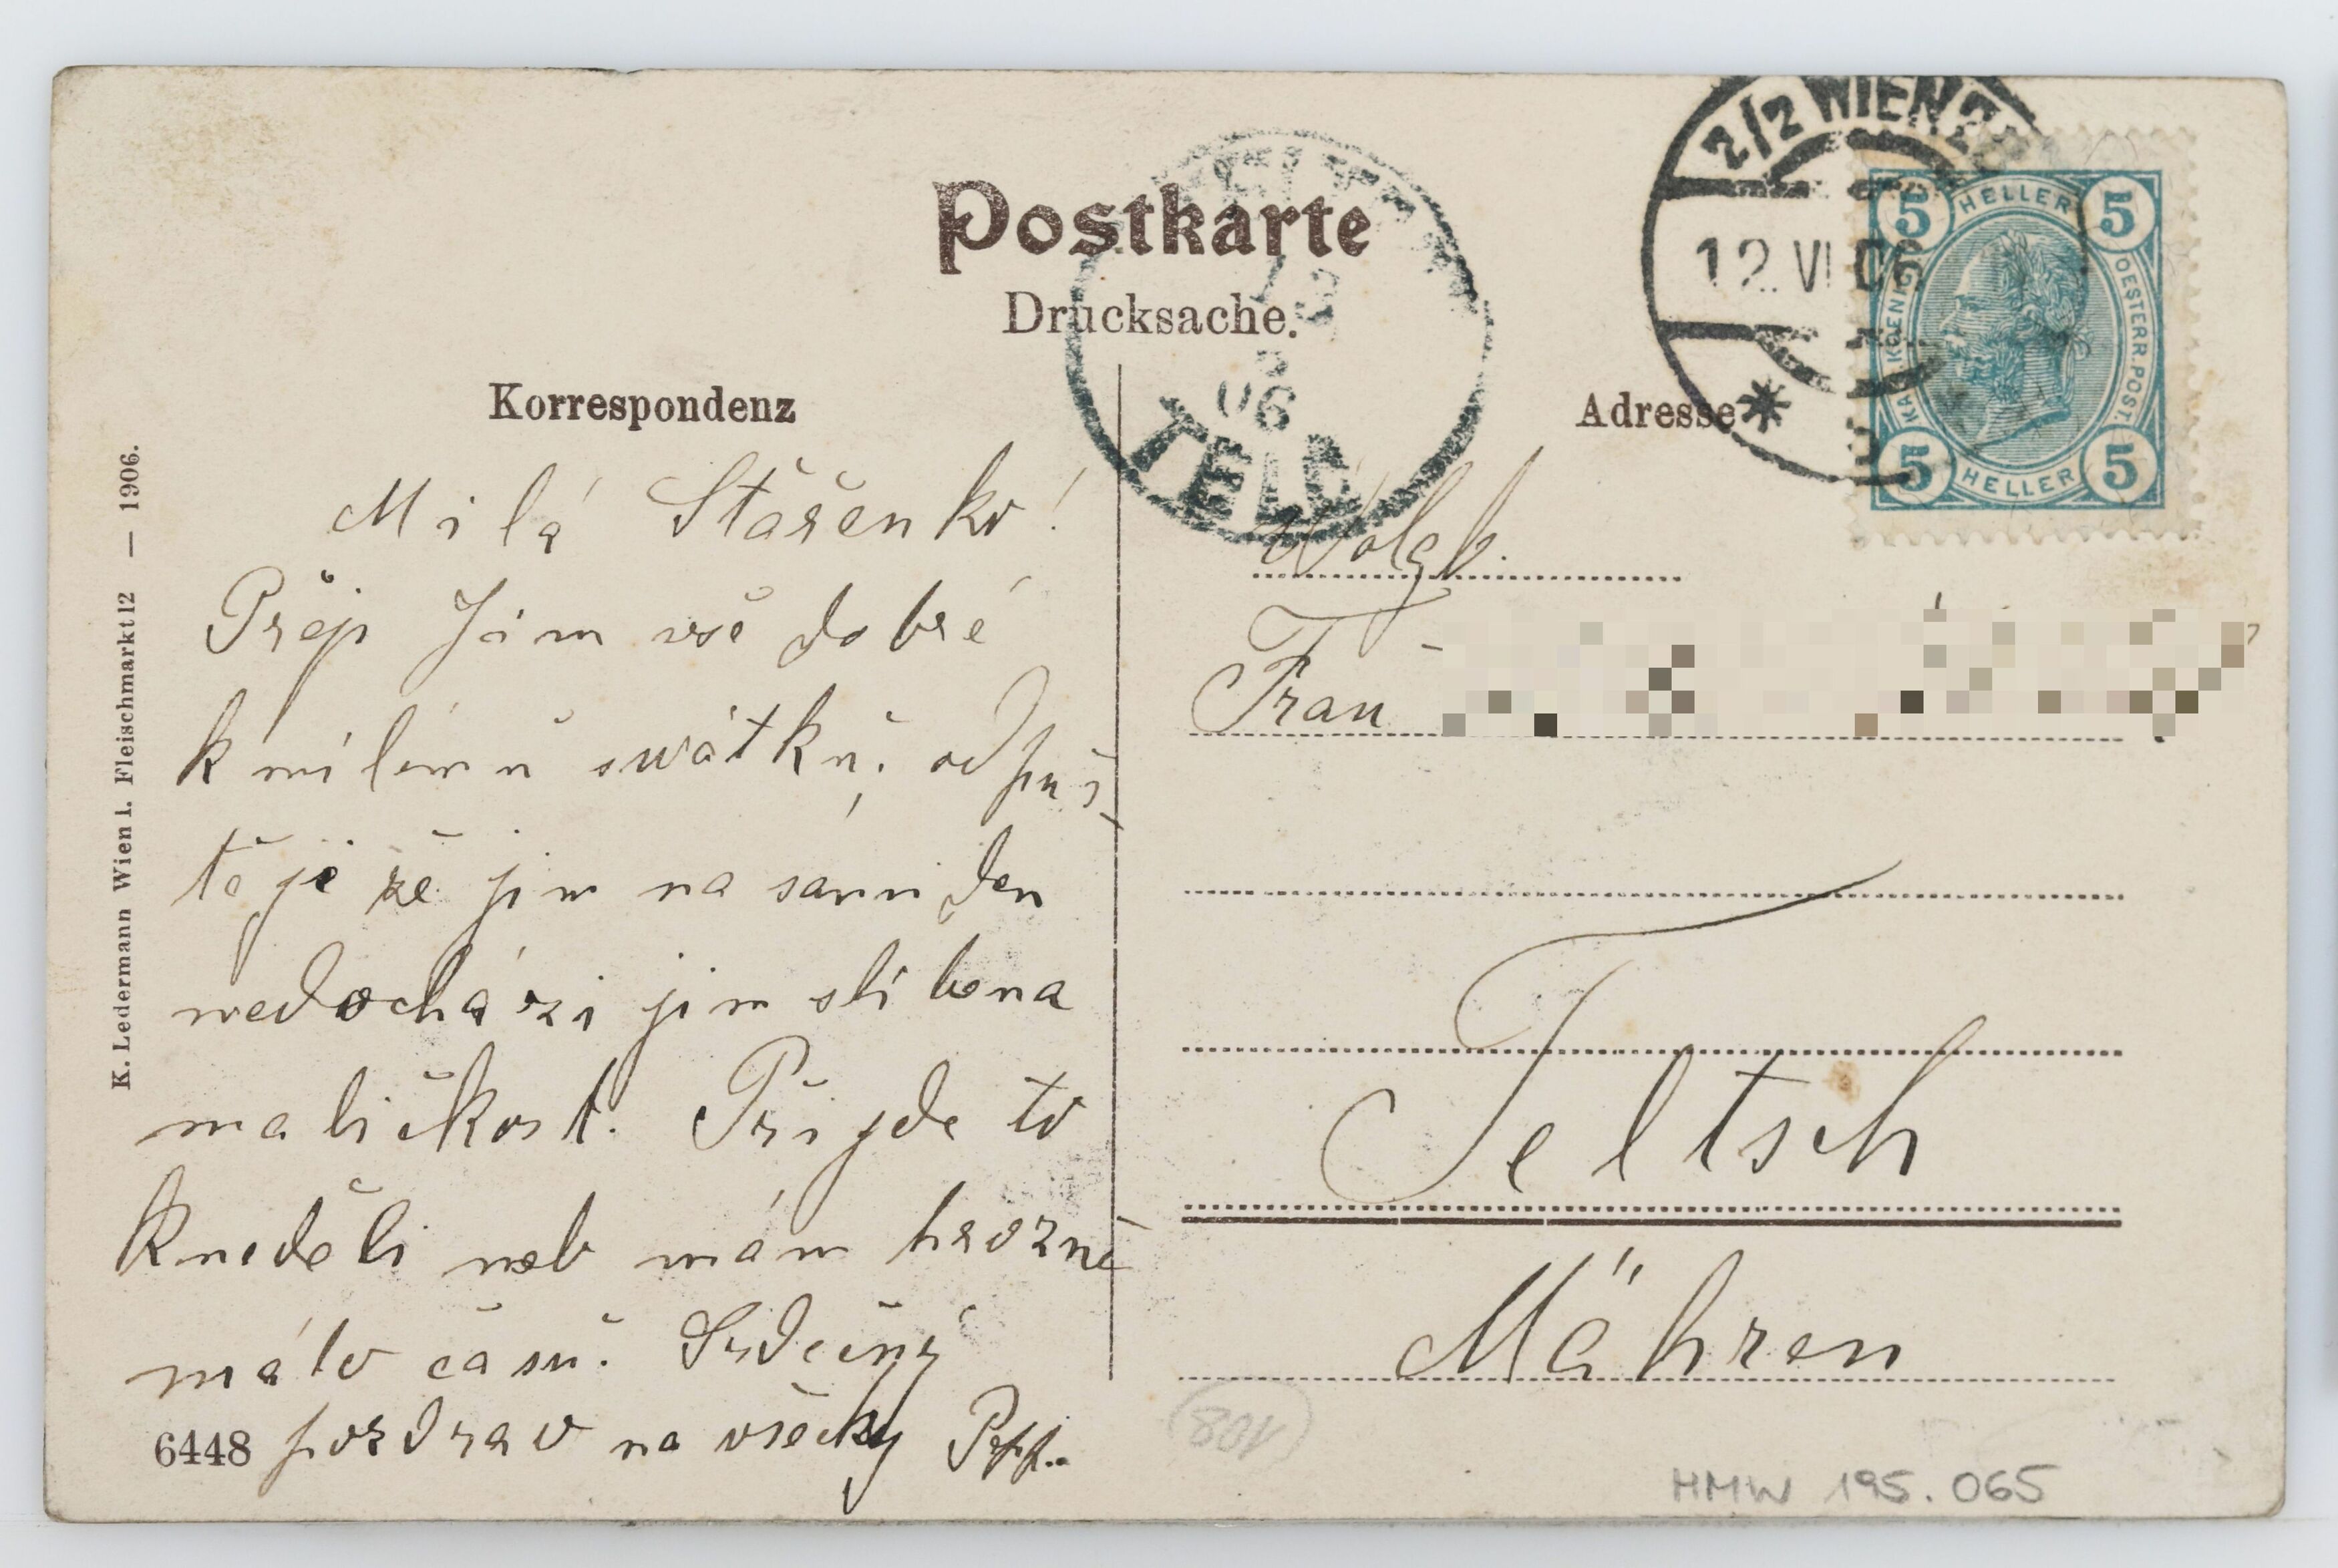 Postkarte
Drucksache.
Korrespondenz
Adresse
K. Ledermann Wien I. Fleischmarkt 12 — 1906.
2/2 WIEN 2
12.VI 06
5 HELLER 5
KAIS. KOENIGL. OESTERR. POST.
5 HELLER 5
13
06
TELČ
Milá Stášenko!
Přeji Jim vše dobré
k milému swátku, odpuš-
tějě že jim na sami den
nedochází jim slíbena
maličkost. Přijde to
k neděli neb mám hrozně
málo času. Srdečný
pozdrav na všecky Pepp..
6448
Wolgb.
Frau
Teltsch
Mähren
(801)
HMW 195.065